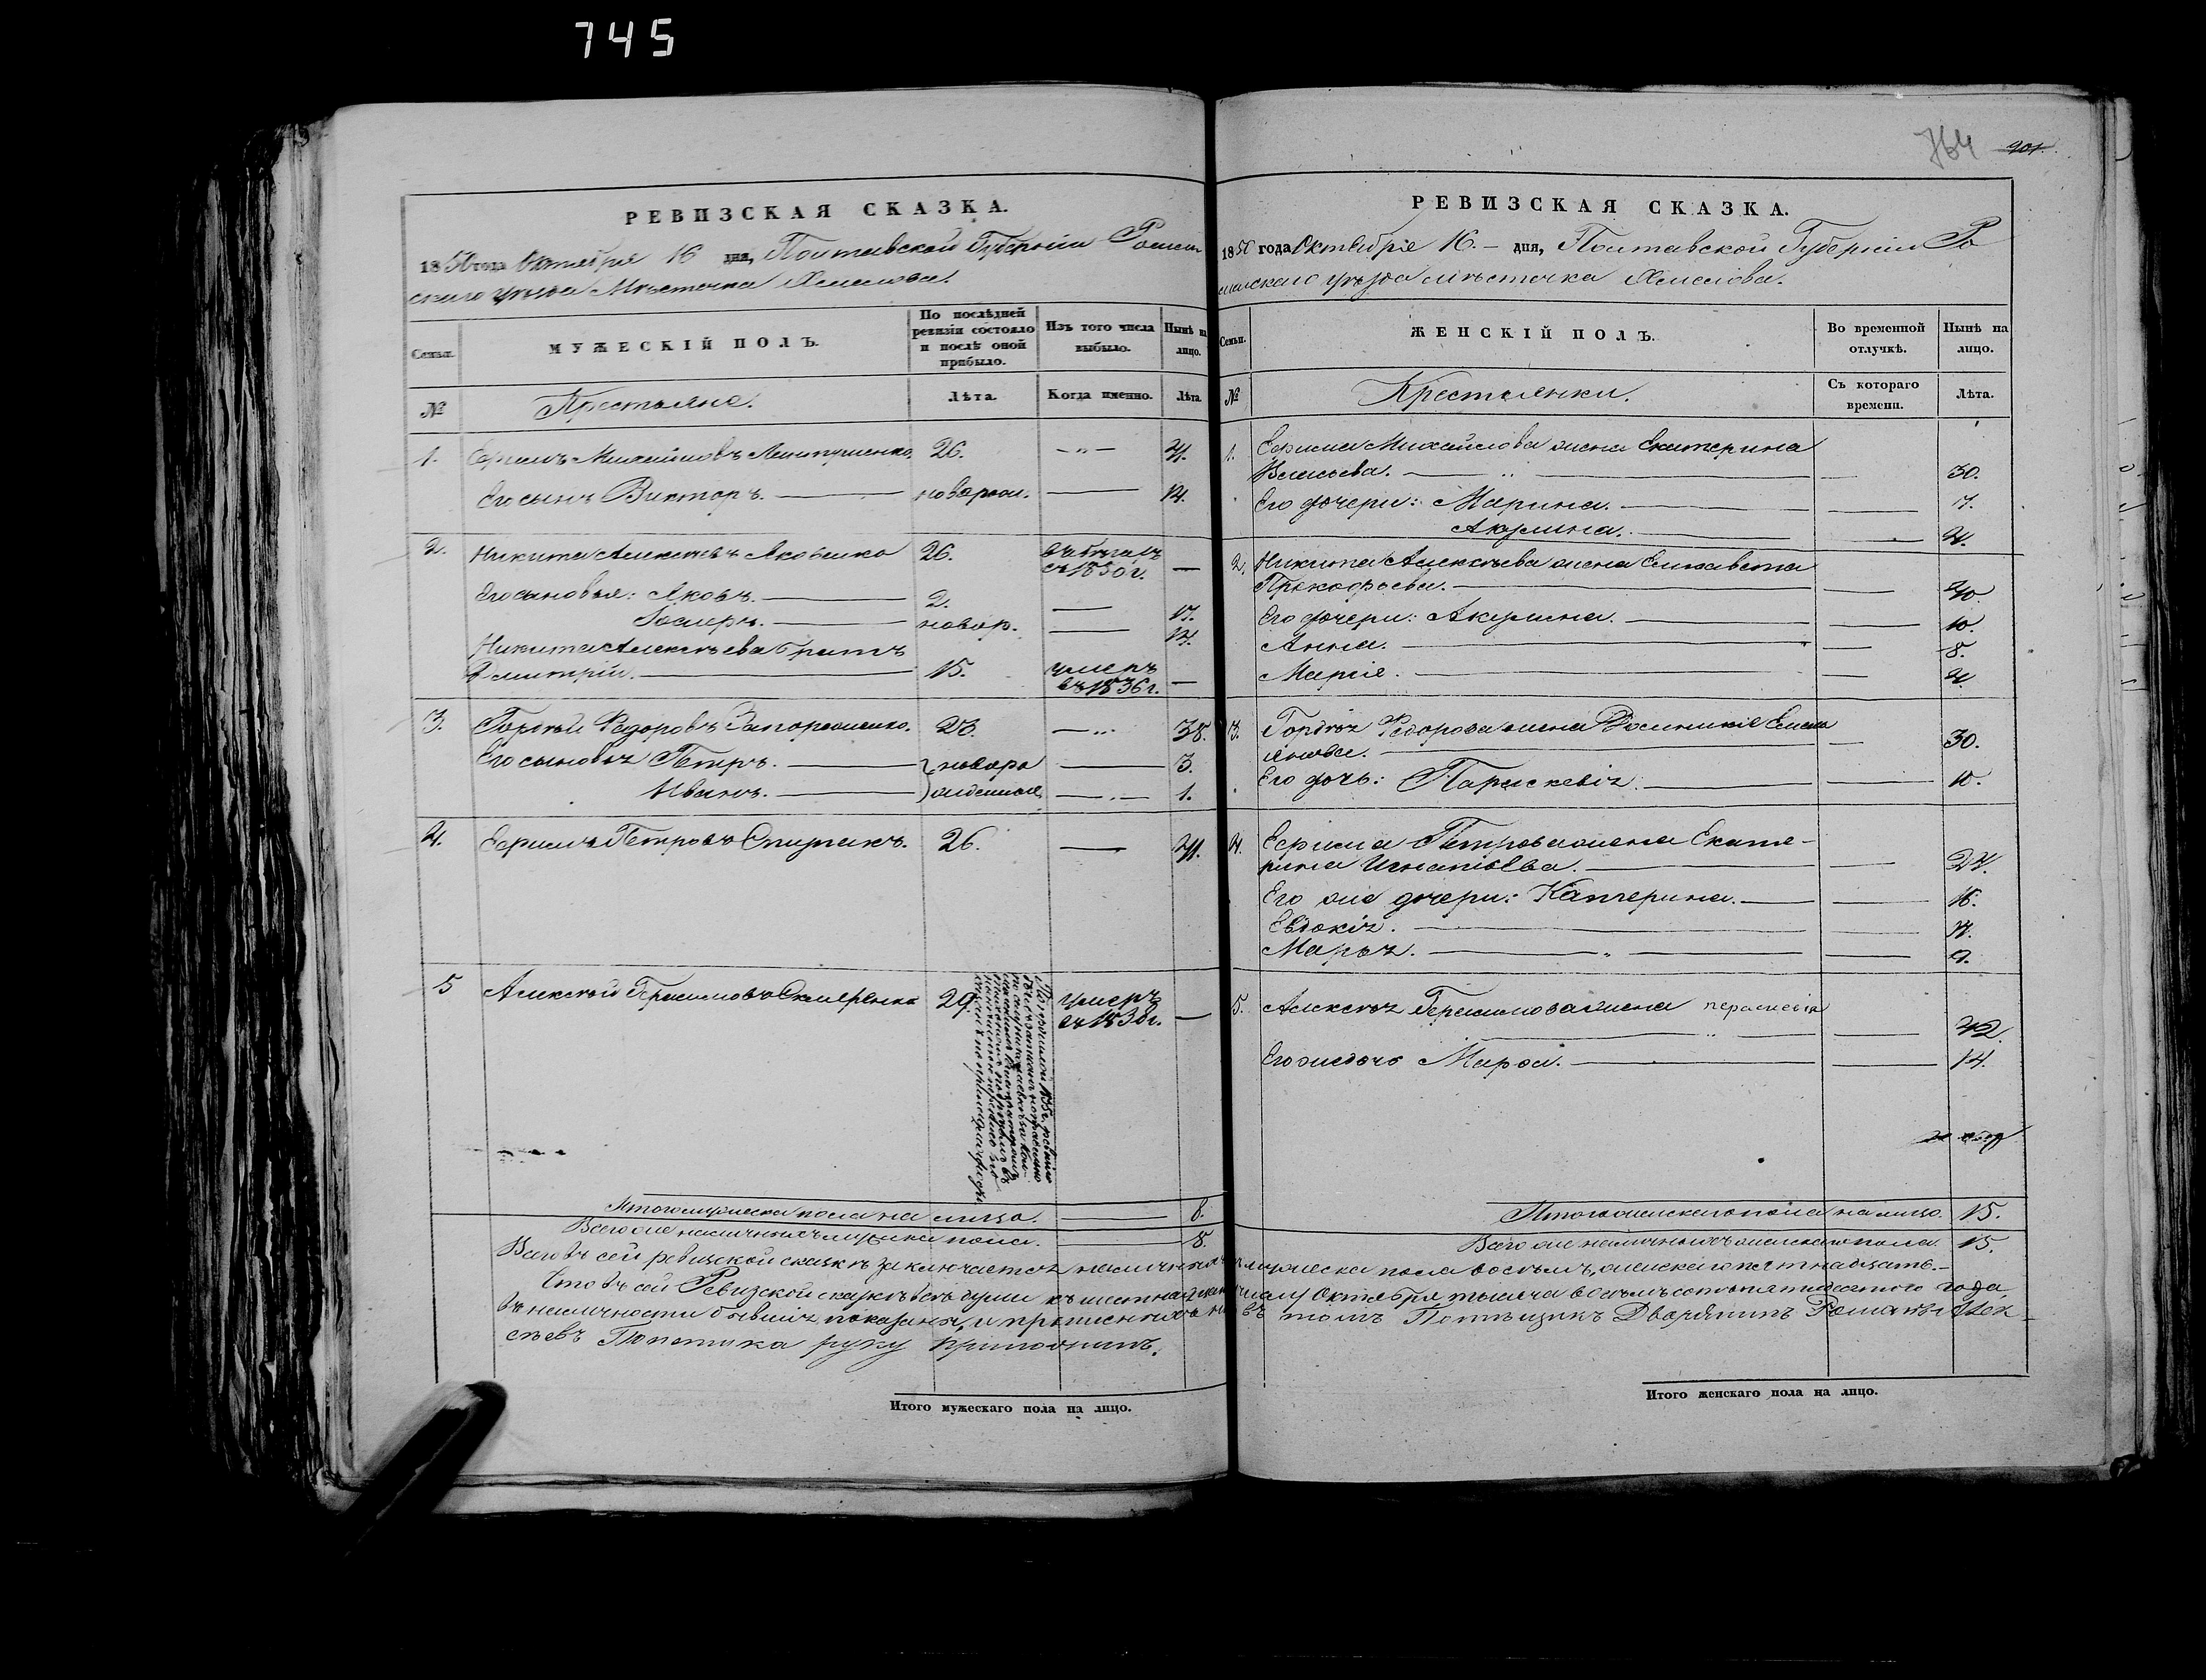 745
764 201.
РЕВИЗСКАЯ СКАЗКА.
1850 года Октября 16 дня, Полтавской Губерніи Ромен
скаго уѣзда Мѣстечка Хмелова.
Семьи.
МУЖЕСКІЙ ПОЛЪ.
По послѣдней ревизіи состояло и послѣ оной прибыло.
Изъ того числа выбыло.
Нынѣ на лицо.
№
Крестьяне.
Лѣта.
Когда именно.
Лѣта.
1. Ефимъ Михайловъ 26. 41.
Его сынъ Викторъ. новорож. 14.
2. Никита Алексѣевъ Яковенко 26. въ бѣгахъ
съ 1830 г.
Его сыновья: Яковъ. 2. 17.
новор. 14.
Никиты Алексѣева братъ
Дмитрій. 15. умеръ
въ 1836 г.
3. Гордѣй Федоровъ Запорожченко. 23. 38.
Его сыновья Петръ. новоро 3.
Иванъ. жденные 1.
4. Ефимъ Петровъ 26. 41.
5 Алексѣй Герасимовъ 29. умеръ
въ 1838 г.
Итого мужеска пола на лицо. 8.
Всего же наличныхъ мужска пола. 8.
РЕВИЗСКАЯ СКАЗКА.
1850 года Октября 16. дня, Полтавской Губерніи Ро
менскаго уѣзда мѣстечка Хмелова.
Семьи.
ЖЕНСКІЙ ПОЛЪ.
Во временной отлучкѣ.
Нынѣ на лицо.
№
Крестьянки.
Съ котораго времени.
Лѣта.
1. Ефима Михайлова жена Екатерина
30.
Его дочери: Марина. 7.
Акулина. 4.
2. Никиты Алексѣева жена Елисавета
Прокофьева. 40.
Его дочери: Акулина. 10.
Анна. 8.
Марія. 4.
3. Гордѣя Федорова жена Домникія Емель
янова. 30.
Его дочь: Параскевія. 10.
4. Ефима Петрова жена Екате-
рина Игнатіева. 44.
Его же дочери: Катерина. 16.
Евдокія. 14.
Марья. 9.
5. Алексѣя Герасимова жена параскевія
42.
Его же дочь Марфа. 14.
Итого женскаго пола на лицо. 15.
Всего же наличныхъ женскаго пола 15.
Всего въ сей ревизской сказкѣ заключается наличныхъ мужеска пола восѣмь, женскаго пятнадцать.-
Что въ сей Ревизской сказкѣ всѣ души къ шестнадцатому числу Октября тысяча восѣмьсотъ пятидесятого года,
въ наличности бывшія показаны, и прописныхъ нѣтъ въ томъ Помѣщикъ Дворянинъ Романъ Алек-
сѣевъ руку приложилъ.
Итого мужескаго пола на лицо.
Итого женскаго пола на лицо.